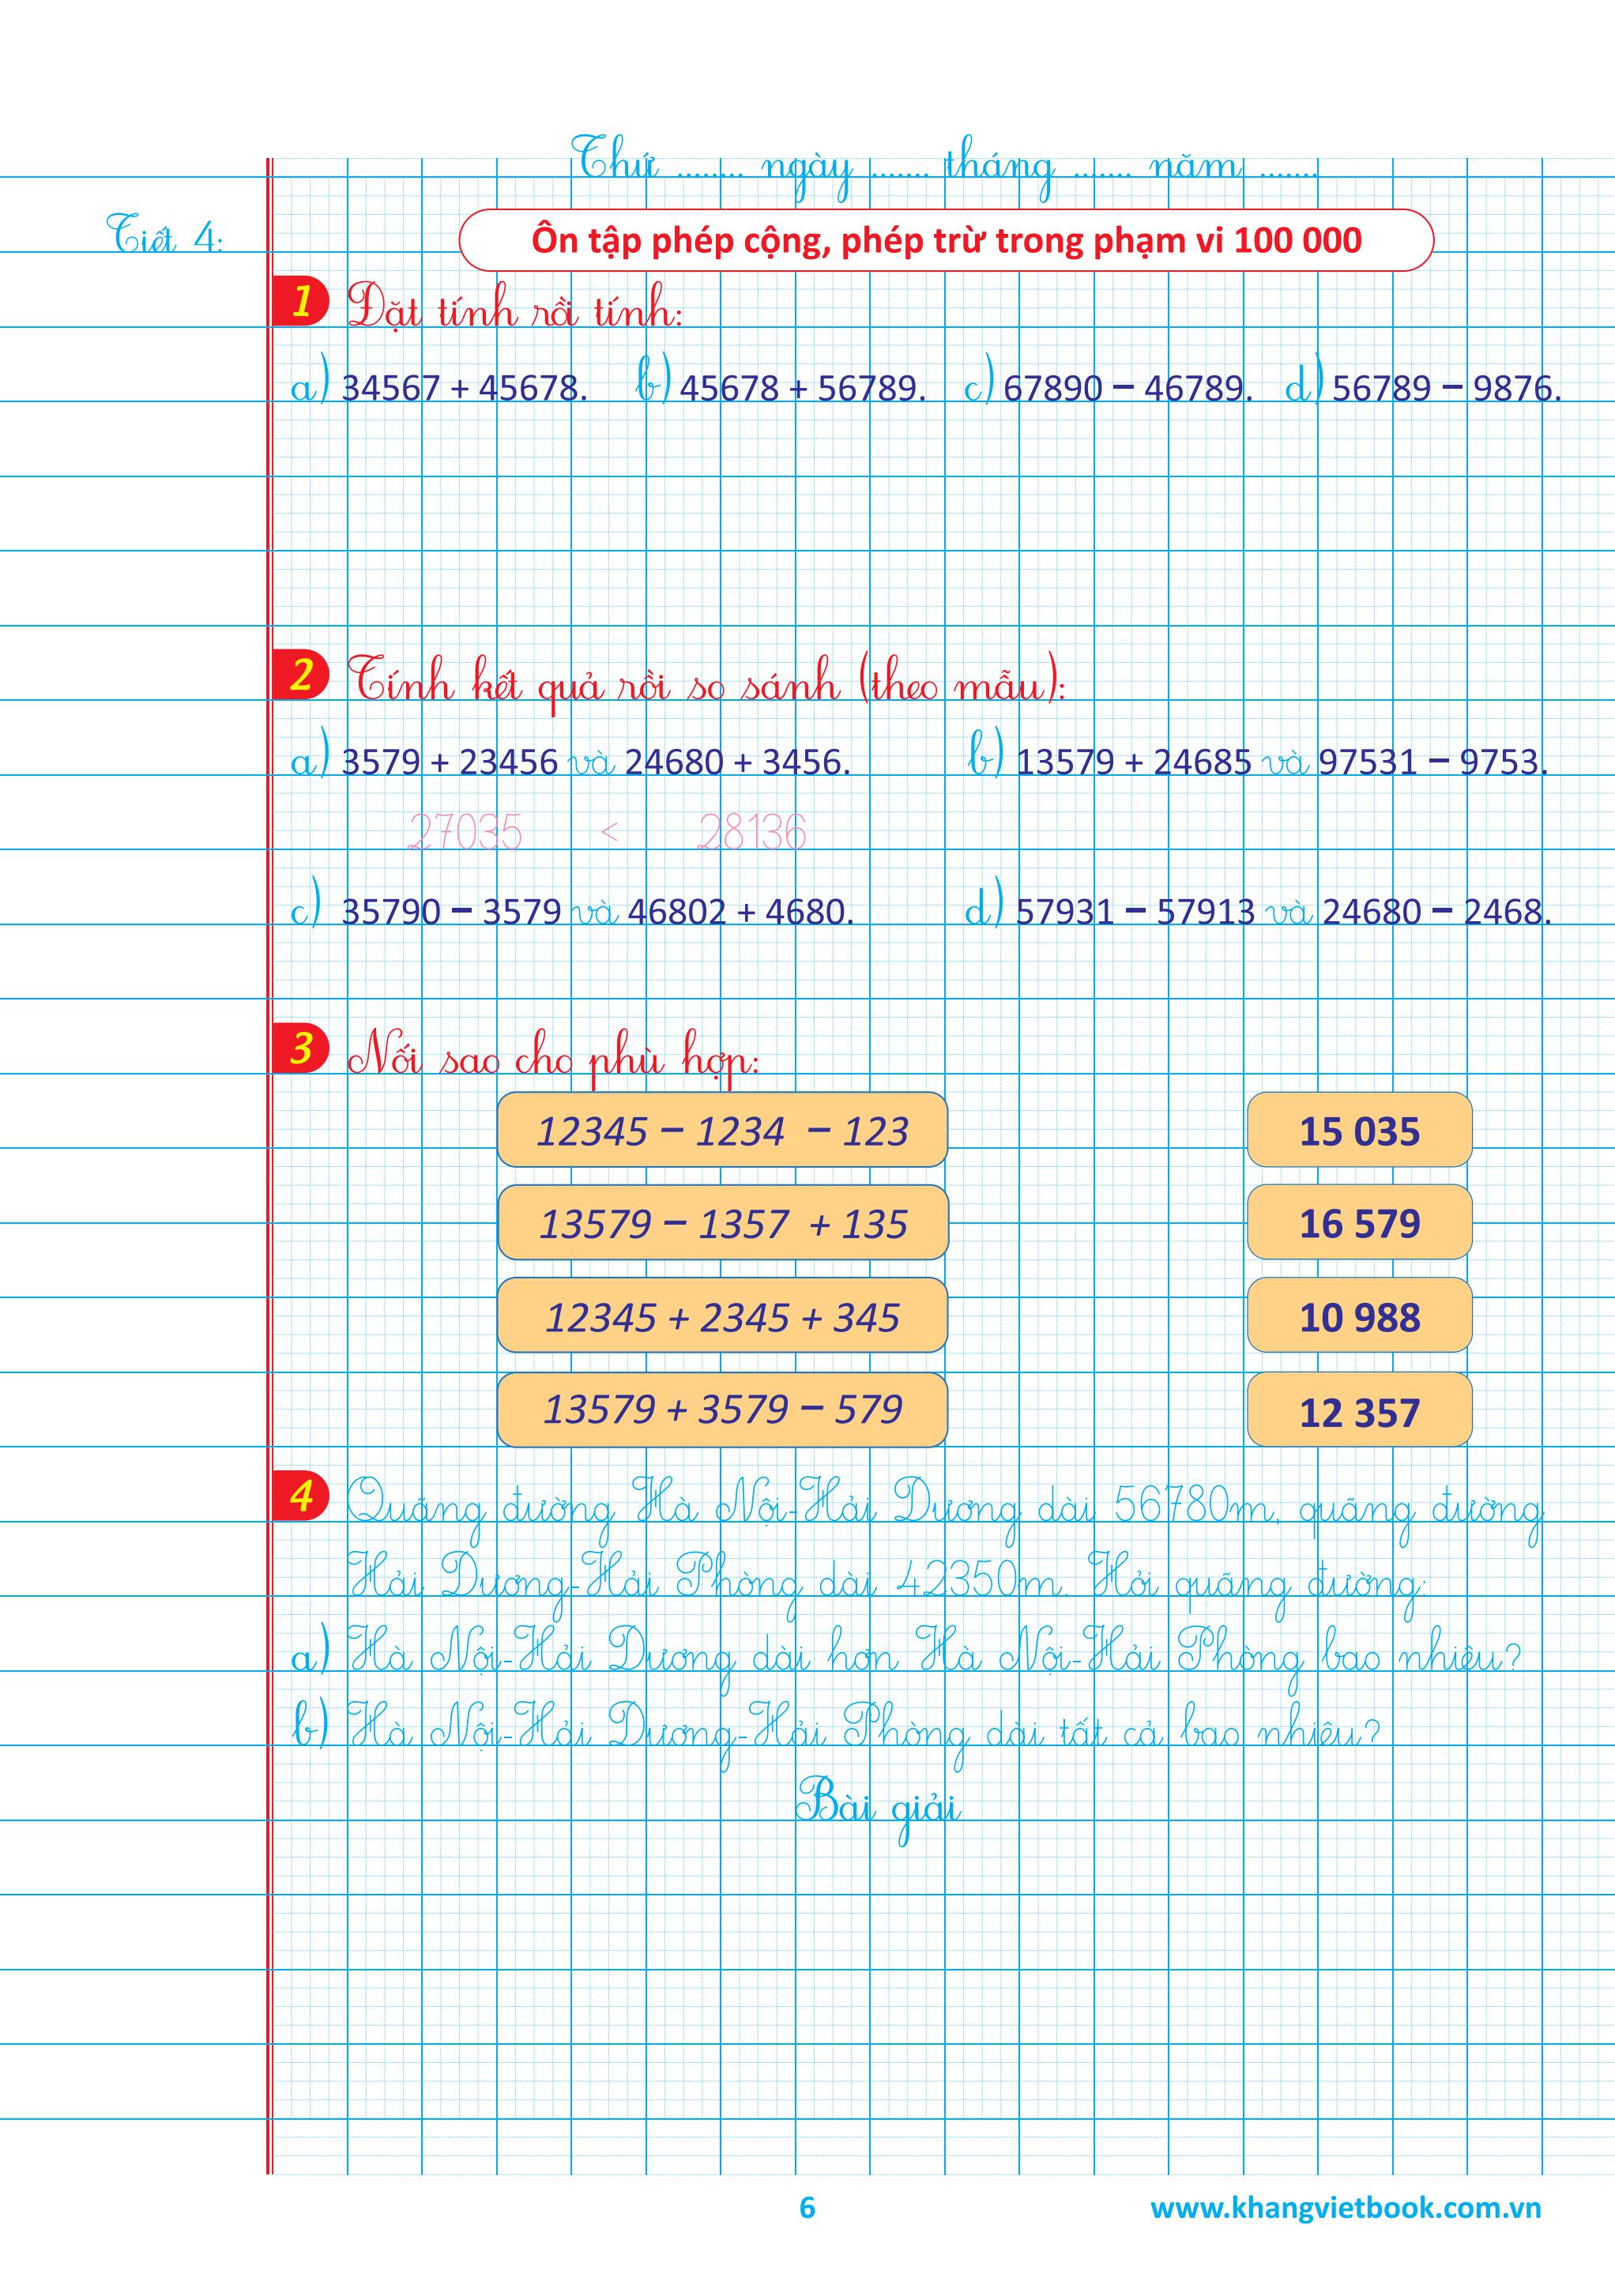 Thứ ........ ngày ....... tháng ....... năm .......
Tiết 4:
Ôn tập phép cộng, phép trừ trong phạm vi 100 000
1 Đặt tính rồi tính:
a) 34567 + 45678. b) 45678 + 56789. c) 67890 − 46789. d) 56789 − 9876.
2 Tính kết quả rồi so sánh (theo mẫu):
a) 3579 + 23456 và 24680 + 3456. b) 13579 + 24685 và 97531 − 9753.
27035 < 28136
c) 35790 − 3579 và 46802 + 4680. d) 57931 − 57913 và 24680 − 2468.
3 Nối sao cho phù hợp:
12345 − 1234 − 123 15 035
13579 − 1357 + 135 16 579
12345 + 2345 + 345 10 988
13579 + 3579 − 579 12 357
4 Quãng đường Hà Nội-Hải Dương dài 56780m, quãng đường
Hải Dương-Hải Phòng dài 42350m. Hỏi quãng đường:
a) Hà Nội-Hải Dương dài hơn Hà Nội-Hải Phòng bao nhiêu?
b) Hà Nội-Hải Dương-Hải Phòng dài tất cả bao nhiêu?
Bài giải
6 www.khangvietbook.com.vn